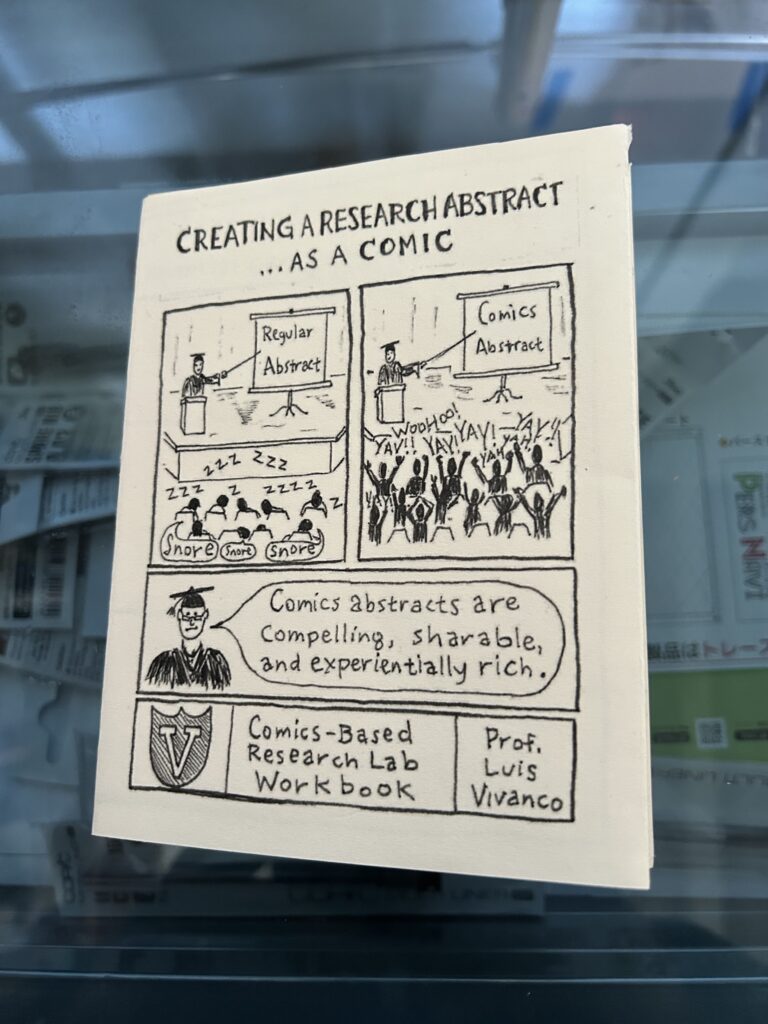 CREATING A RESEARCH ABSTRACT
...AS A COMIC
Regular
Abstract
ZZZ ZZZ
ZZZ Z ZZZZ Z
Snore Snore Snore
Comics
Abstract
WOOHOO!
YAY!! YAY! YAY! YAY!!
YAH! YAH!
Comics abstracts are
compelling, sharable,
and experientially rich.
V
Comics-Based
Research Lab
Workbook
Prof.
Luis
Vivanco